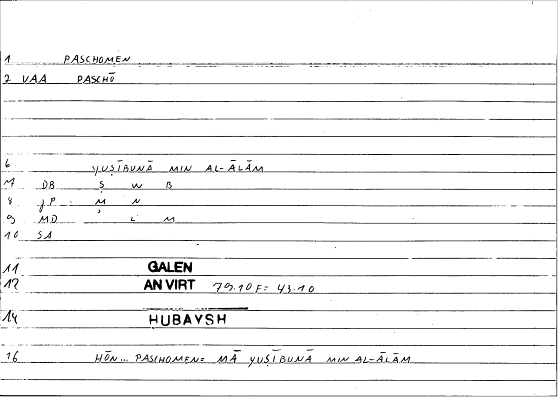 1 PASCHOMEN
2 VAA PASCHŌ
6 YUṢĪBUNĀ MIN AL-ĀLĀM
7 DB Ṣ W B
8 JP M N
9 MD ʾ L M
10 SA
11 GALEN
12 AN VIRT 79.10 F= 43.10
14 HUBAYSH
16 HŌN... PASCHOMEN= MĀ YUṢĪBUNĀ MIN AL-ĀLĀM